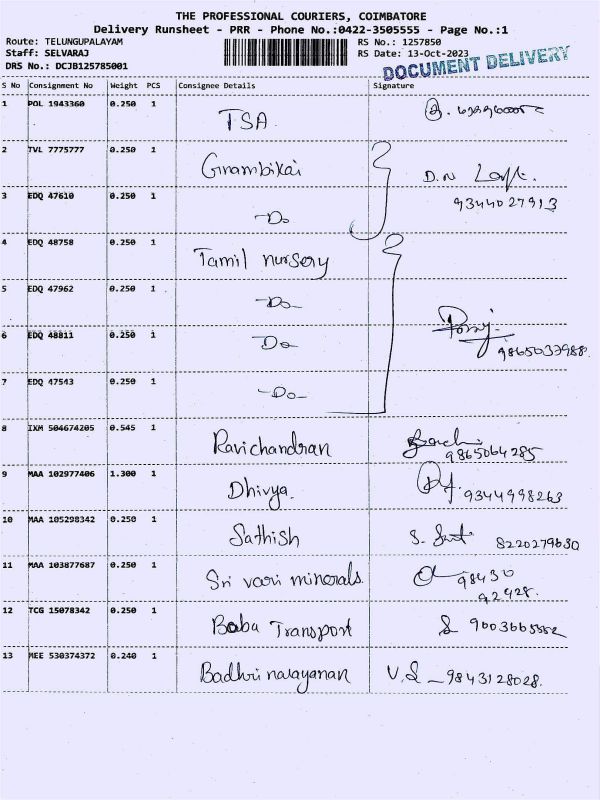 THE PROFESSIONAL COURIERS, COIMBATORE
Delivery Runsheet - PRR - Phone No.:0422-3505555 - Page No.:1
Route: TELUNGUPALAYAM RS No.: 1257850
Staff: SELVARAJ RS Date: 13-Oct-2023
DRS No.: DCJB125785001 DOCUMENT DELIVERY
S No Consignment No Weight PCS Consignee Details Signature
1 POL 1943360 0.250 1 TSA
2 TVL 7775777 0.250 1 Gnambikai D.N
3 EDQ 47610 0.250 1 -Do- 9344027913
4 EDQ 48758 0.250 1 Tamil nursery
5 EDQ 47962 0.250 1 -Do-
6 EDQ 48811 0.250 1 -Do- 9865037988
7 EDQ 47543 0.250 1 -Do-
8 IXM 504674205 0.545 1 Ravichandran 9865064285
9 MAA 102977406 1.300 1 Dhivya. 9344998263
10 MAA 105298342 0.250 1 Sathish 8220279630
11 MAA 103877687 0.250 1 Sri vari minerals. 98430
92428.
12 TCG 15078342 0.250 1 Baba Transport 9003665552
13 MEE 530374372 0.240 1 Badhrinarayanan V.S - 9843128028.